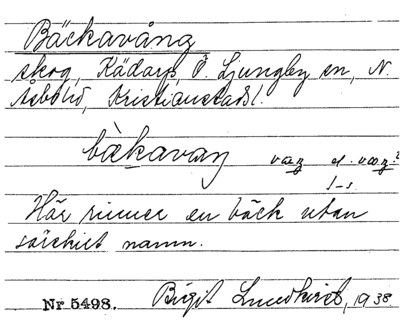 Bäckavång
skog, Kädarp, Ö. Ljungby sn, N.
Åsbohd, Kristianstadsl.
bækavaŋ vaŋ el. vooŋ?
Här rinner en bäck utan
särskilt namn.
Nr 5498. Birgit Lundkvist, 1938.